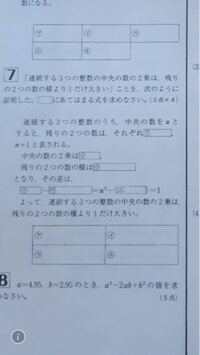 数になる。
㋐ ㋑ ㋒
㋓ ㋔
7 「連続する3つの整数の中央の数の2乗は、残り
の2つの数の積より1だけ大きい」ことを、次のように
証明した。□にあてはまる式を求めなさい。(3点×4)
連続する3つの整数のうち、中央の数を n と
すると、残りの2つの数は、それぞれ㋐,
n+1と表される。
中央の数の2乗は㋑,
残りの2つの数の積は㋒
となり、その差は、
㋑－㋒＝n²－(㋓)＝1
よって、連続する3つの整数の中央の数の2乗は、
残りの2つの数の積より1だけ大きい。
㋐ ㋑
㋒ ㋓
8 a=4.95, b=2.95のとき, a²－2ab＋b² の値を求
めなさい。 (5点)
(4)